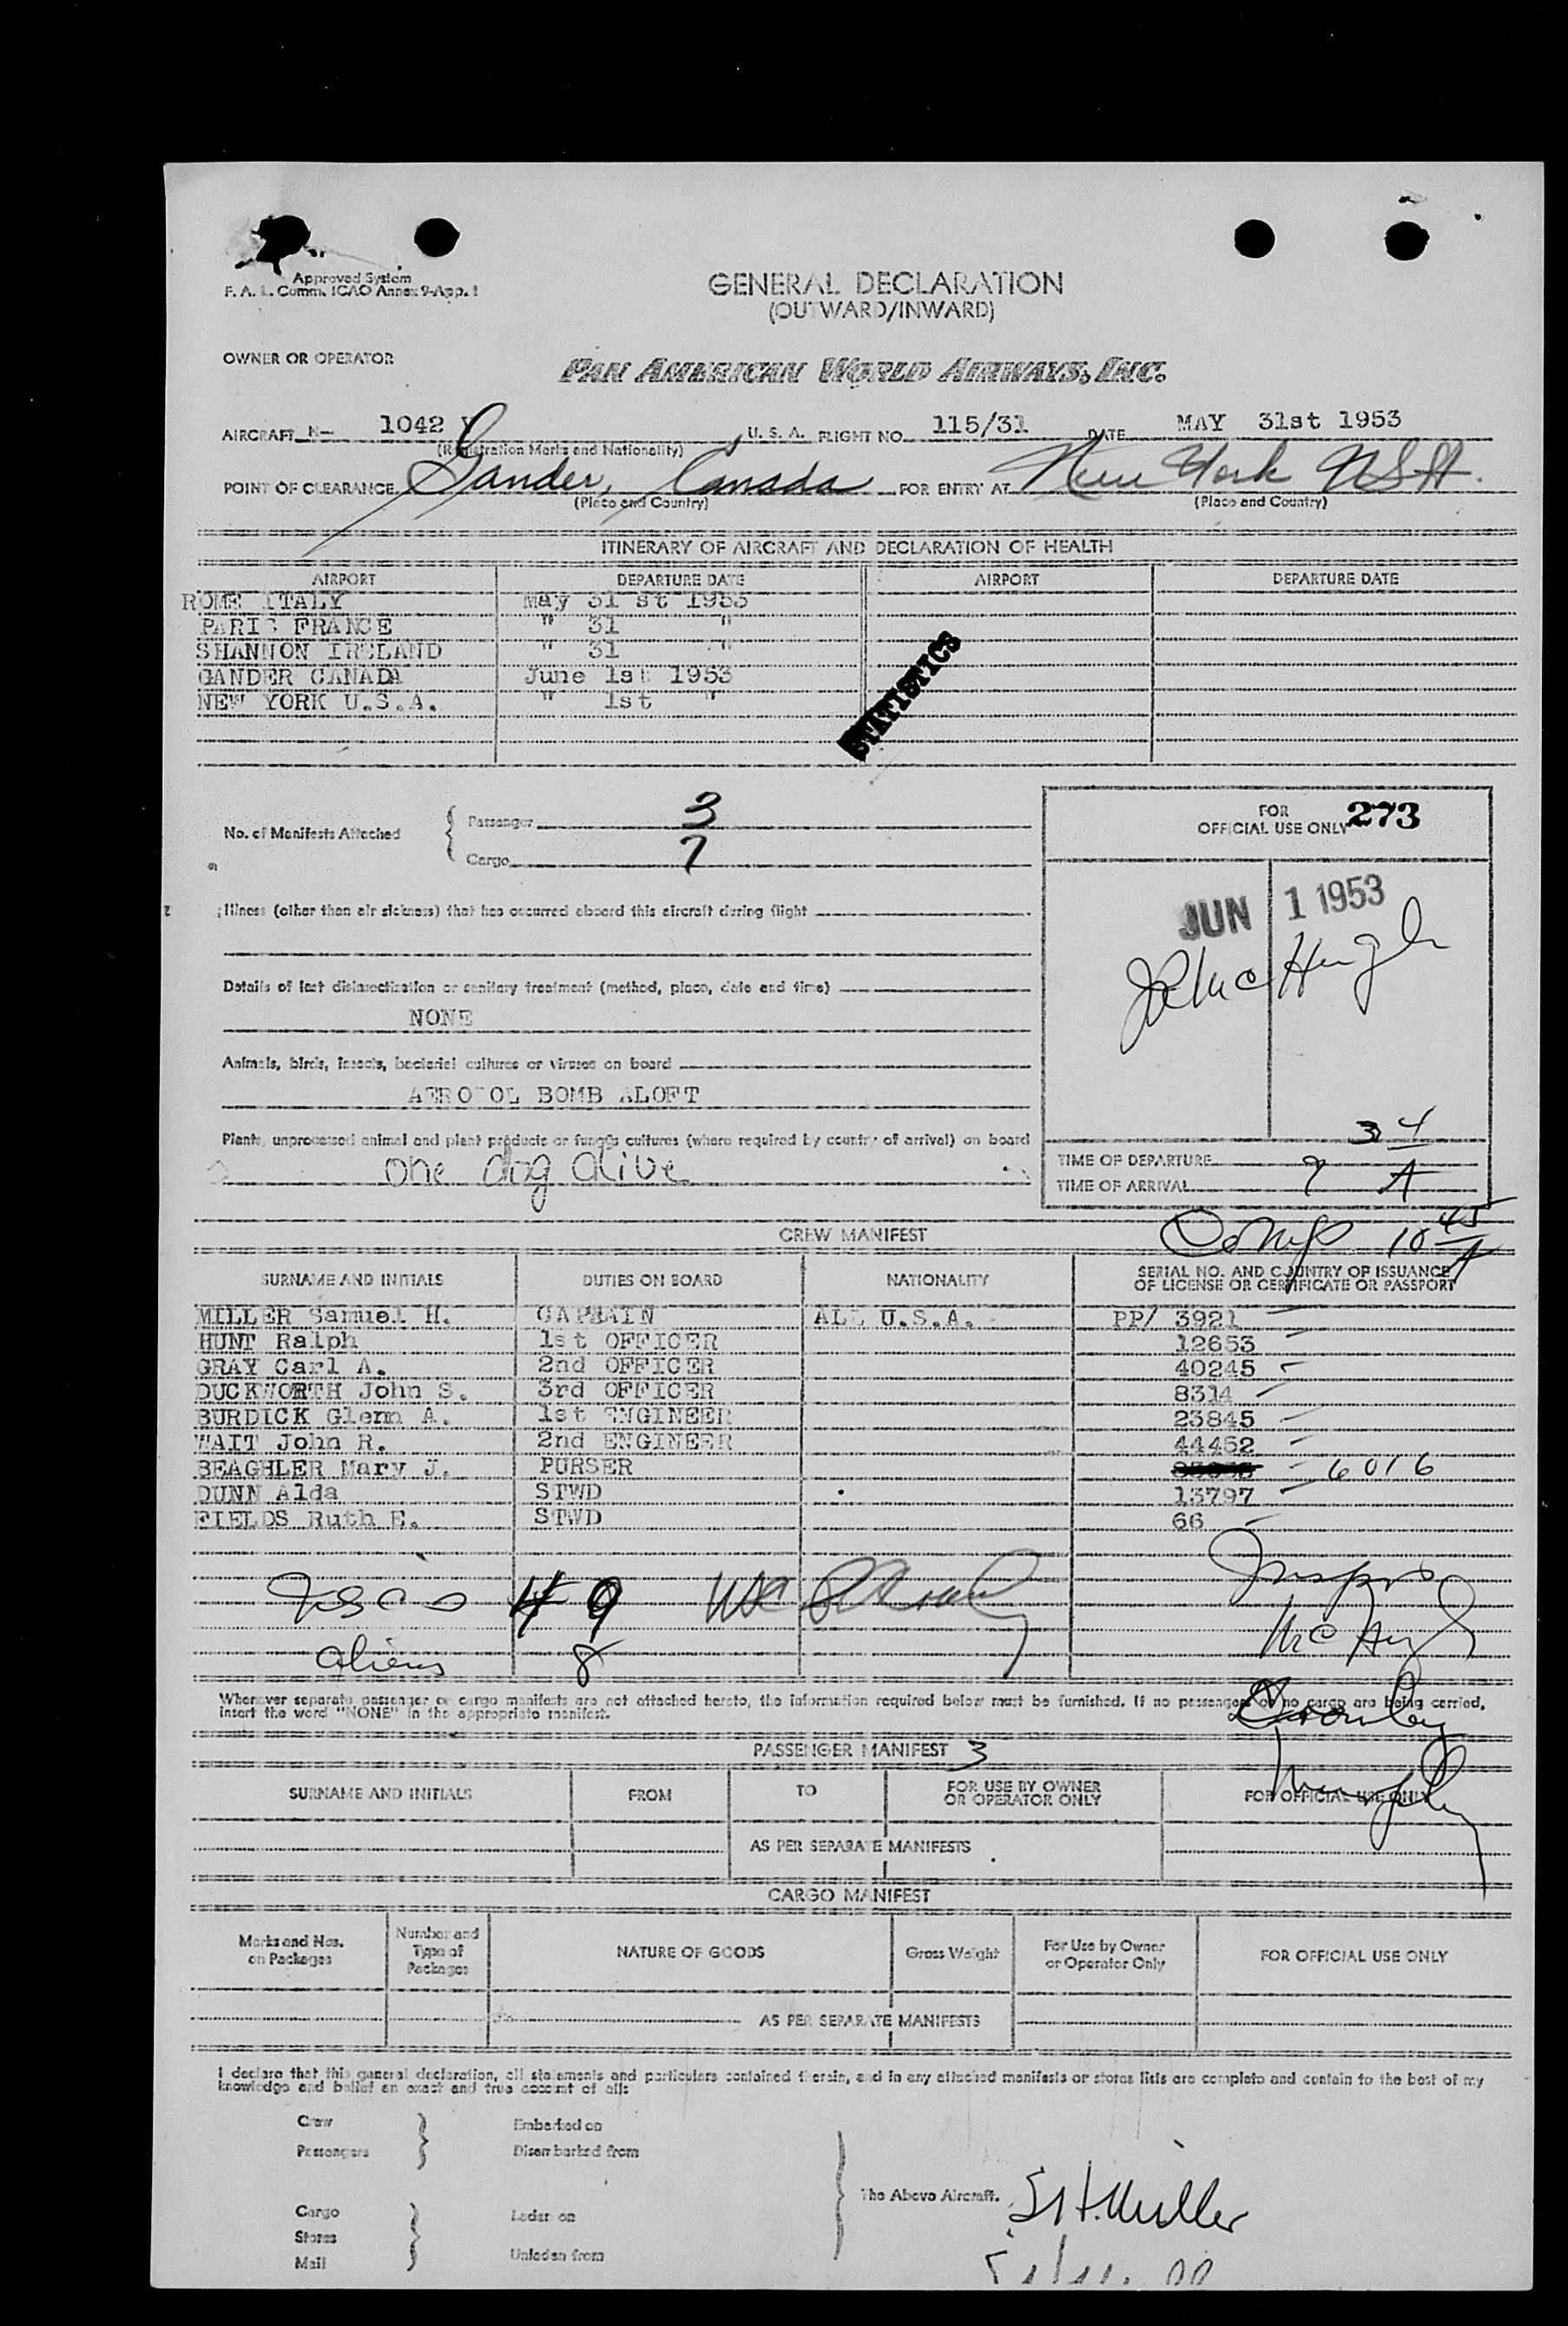 Approved System
F. A. L. Comm. ICAO Annex 9-App. 1
GENERAL DECLARATION
(OUTWARD/INWARD)
OWNER OR OPERATOR
PAN AMERICAN WORLD AIRWAYS, INC.
AIRCRAFT N- 1042 V U. S. A. FLIGHT NO. 115/31 DATE MAY 31st 1953
(Registration Marks and Nationality)
POINT OF CLEARANCE Gander, Canada FOR ENTRY AT New York USA.
(Place and Country) (Place and Country)
ITINERARY OF AIRCRAFT AND DECLARATION OF HEALTH
AIRPORT DEPARTURE DATE AIRPORT DEPARTURE DATE
ROME ITALY May 31 st 1953
PARIS FRANCE " 31 "
SHANNON IRELAND " 31 "
GANDER CANADA June 1st 1953
NEW YORK U.S.A. " 1st "
STATISTICS
No. of Manifests Attached
Passenger 3
Cargo 7
FOR
OFFICIAL USE ONLY 273
JUN 1 1953
McHugh
Illness (other than air sickness) that has occurred aboard this aircraft during flight
Details of last disinsectization or sanitary treatment (method, place, date and time)
NONE
Animals, birds, insects, bacterial cultures or viruses on board
AEROSOL BOMB ALOFT
Plants, unprocessed animal and plant products or fungus cultures (where required by country of arrival) on board
one dog alive
TIME OF DEPARTURE
TIME OF ARRIVAL 9 34 A
CREW MANIFEST
10 45 A
SURNAME AND INITIALS DUTIES ON BOARD NATIONALITY SERIAL NO. AND COUNTRY OF ISSUANCE
OF LICENSE OR CERTIFICATE OR PASSPORT
MILLER Samuel H. CAPTAIN ALL U.S.A. PP/ 3921
HUNT Ralph 1st OFFICER 12653
GRAY Carl A. 2nd OFFICER 40245
DUCKWORTH John S. 3rd OFFICER 8314
BURDICK Glenn A. 1st ENGINEER 23845
WAIT John R. 2nd ENGINEER 44452
BEAGHLER Mary J. PURSER 6016
DUNN Alda STWD 13797
FIELDS Ruth E. STWD 66
49
Insprs
McHugh
aliens 8
Whenever separate passenger or cargo manifests are not attached hereto, the information required below must be furnished. If no passengers or no cargo are being carried,
insert the word "NONE" in the appropriate manifest.
PASSENGER MANIFEST 3
SURNAME AND INITIALS FROM TO FOR USE BY OWNER
OR OPERATOR ONLY FOR OFFICIAL USE ONLY
AS PER SEPARATE MANIFESTS
CARGO MANIFEST
Marks and Nos.
on Packages
Number and
Type of
Packages
NATURE OF GOODS Gross Weight For Use by Owner
or Operator Only FOR OFFICIAL USE ONLY
AS PER SEPARATE MANIFESTS
I declare that this general declaration, all statements and particulars contained therein, and in any attached manifests or stores lists are complete and contain to the best of my
knowledge and belief an exact and true account of all:
Crew Embarked on
Passengers Disembarked from
The Above Aircraft. S.H. Miller
Cargo Laden on
Stores
Mail Unladen from